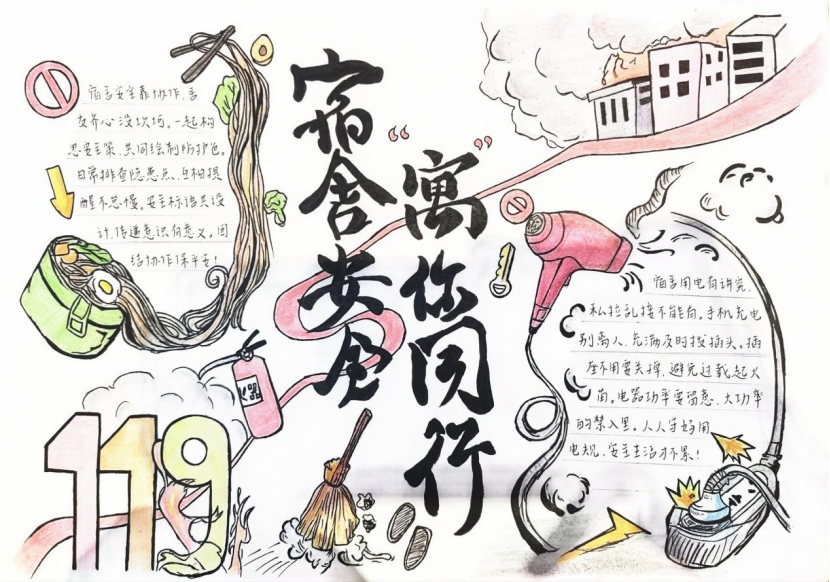 宿舍安全
“寓”你同行
宿舍安全靠协作,舍
友齐心没坎坷。一起构
思安全策,共同绘制防护色。
日常排查隐患点,互相提
醒不怠慢。安全标语共设
计,传递意识有意义。团
结协作保平安!
宿舍用电有讲究,
私拉乱接不能有。手机充电
别离人,充满及时拔插头。插
座不用要关掉,避免过载起火
苗。电器功率要留意,大功率
的禁入里。人人守好用
电规,安全生活才不累!
119